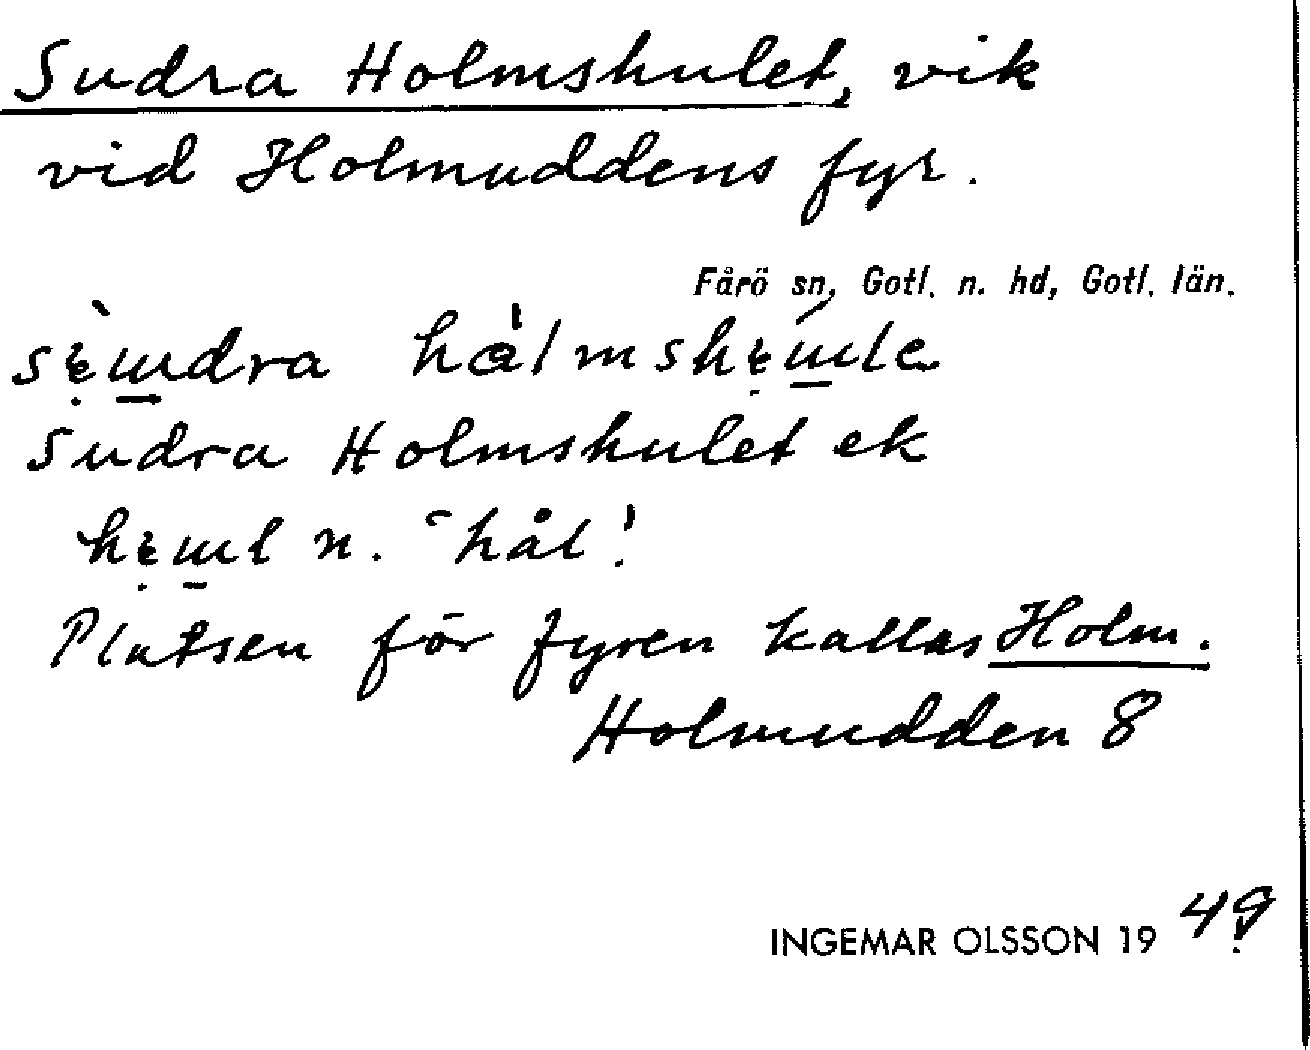 Sudra Holmshulet, vik
vid Holmuddens fyr.
Fårö sn, Gotl. n. hd, Gotl. län.
Sudra Holmshulet ek
n. "hål".
Platsen för fyren kallas Holm.
Holmudden 8
INGEMAR OLSSON 1949